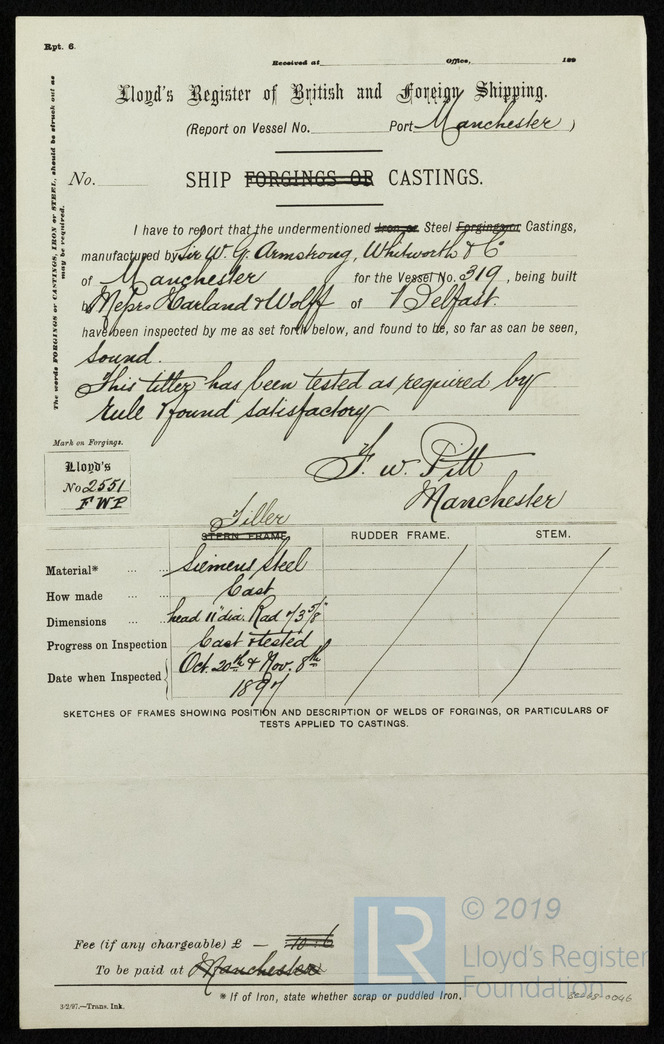 Rpt. 6.
Received at Office, 189
Lloyd's Register of British and Foreign Shipping.
(Report on Vessel No. Port Manchester )
No. SHIP FORGINGS OR CASTINGS.
The words FORGINGS or CASTINGS, IRON or STEEL, should be struck out as
may be required.
I have to report that the undermentioned Iron or Steel Forgings or Castings,
manufactured by Sir W. G. Armstrong, Whitworth & Co
of Manchester for the Vessel No. 319, being built
by Messrs Harland & Wolff of Belfast.
have been inspected by me as set forth below, and found to be, so far as can be seen,
sound.
This tiller has been tested as required by
rule & found satisfactory
Mark on Forgings.
Lloyd's
No 2551
F W P
F. W. Pitt
Manchester
Tiller
STERN FRAME. RUDDER FRAME. STEM.
Material* ... ... Siemens Steel
How made ... ... Cast
Dimensions ... ... head 11" dia. Rad 3 5/8"
Progress on Inspection Cast & tested
Date when Inspected Oct. 20th & Nov. 8th
1897
SKETCHES OF FRAMES SHOWING POSITION AND DESCRIPTION OF WELDS OF FORGINGS, OR PARTICULARS OF
TESTS APPLIED TO CASTINGS.
Fee (if any chargeable) £ — 10 : 6
To be paid at Manchester
* If of Iron, state whether scrap or puddled Iron.
3/2/97.—Trans. Ink.
LR © 2019
Lloyd's Register
Foundation